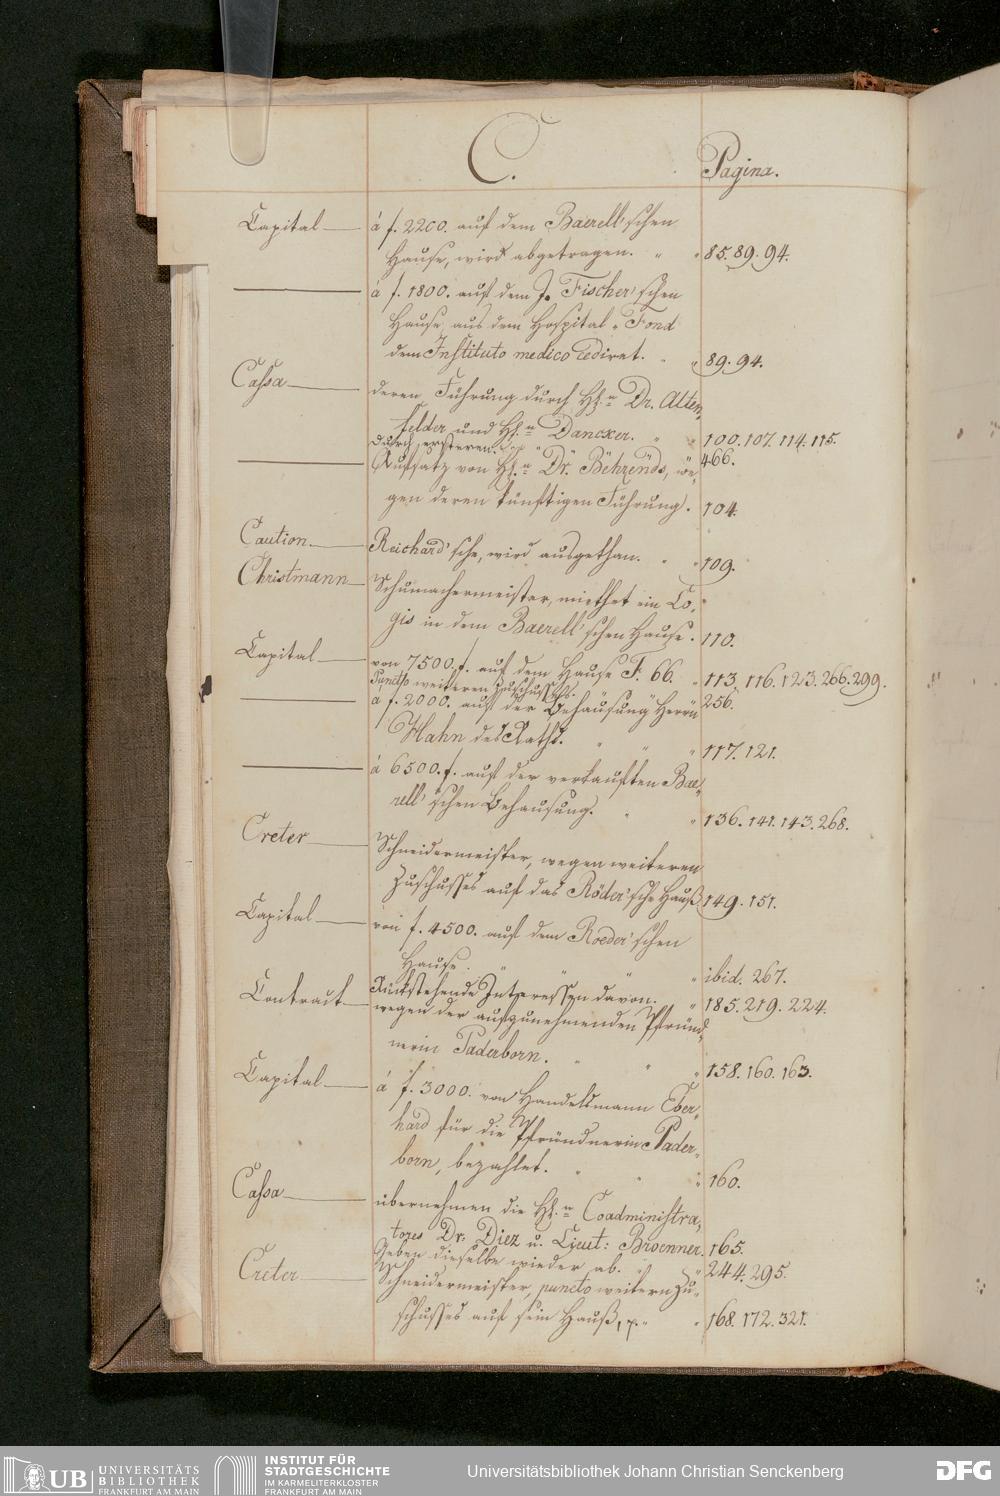 C.
Pagina.
Capital — á f. 2200. auf dem Baerell'schen
Hause, wird abgetragen. " " 85. 89. 94.
— á f. 1800. auf dem J. Fischer'schen
Hause, aus dem Hospital-Fond
dem Instituto medico cediret. " " 89. 94.
Cassa — deren Führung durch Hh.n Dr. Alten-
felder und Hh.n Dancker. " " 100. 107. 114. 115.
durch ersteren. 466.
— Aufsatz von Hh.n Dr. Behrends, we-
gen deren künftigen Führung. 104.
Caution — Reichard'sche, wird ausgethan. " " 109.
Christmann — Schumachermeister, miethet ein Lo-
gis in dem Baerell'schen Hause. 110.
Capital — von 7500. f. auf dem Hause F. 66. " 113. 116. 123. 266. 299.
Puncto weiteren Zuschusses. 256.
— á f. 2000. auf der Behausung Herrn
Hahn des Raths. " " " 117. 121.
— á 6500. f. auf der verkauften Bae-
rell'schen Behausung. " " 136. 141. 143. 268.
Creter — Schneidermeister, wegen weiteren
Zuschusses auf das Röder'sche Hauß 149. 151.
Capital — von f. 4500. auf dem Roeder'schen
Hause. " " " " ibid. 267.
Rückstehende Interessen davon. " 185. 219. 224.
Contract — wegen der aufzunehmenden Pfründ-
nerin Paderborn. " " " 158. 160. 163.
Capital — á f. 3000. von Handelsmann Eber-
hard für die Pfründnerin Pader-
born, bezahlet. " " " 160.
Cassa — übernehmen die Hh.n Coadministra-
tores Dr. Diez u. Lieut: Broenner. 165.
Geben dieselbe wieder ab. " " 244. 295.
Creter — Schneidermeister, puncto weitern Zu-
schusses auf sein Hauß, " " 168. 172. 321.
UB UNIVERSITÄTS
BIBLIOTHEK
FRANKFURT AM MAIN
INSTITUT FÜR
STADTGESCHICHTE
IM KARMELITERKLOSTER
FRANKFURT AM MAIN
Universitätsbibliothek Johann Christian Senckenberg
DFG